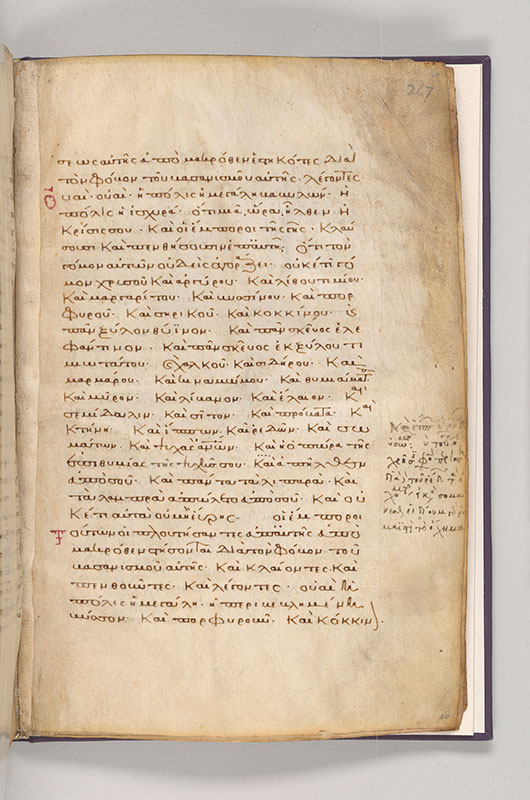 267
σεως αὐτῆς ἀπὸ μακρόθεν ἑστηκότες διὰ
τὸν φόβον τοῦ βασανισμοῦ αὐτῆς· λέγοντες·
οὐαὶ· οὐαὶ· ἡ πόλις ἡ μεγάλη βαβυλών· ἡ
πόλις ἡ ἰσχυρά· ὅτι μιᾷ ὥρᾳ ἦλθεν ἡ
κρίσις σου· καὶ οἱ ἔμποροι τῆς γῆς· κλαύ
σουσι καὶ πενθήσουσιν ἐπ αὐτῇ· ὅτι τὸν
γόμον αὐτῶν οὐδεὶς ἀγοράζει· οὐκέτι γό
μον χρυσοῦ καὶ ἀργύρου· καὶ λίθου τιμίου·
καὶ μαργαρίτου· καὶ βυσσίνου· καὶ πορ
φυροῦ· καὶ σηρικοῦ· καὶ κοκκίνου·
πᾶν ξύλον θύϊνον· καὶ πᾶν σκεῦος ἐλε
φάντινον· καὶ πᾶν σκεῦος ἐκ ξύλου τι
μιωτάτου· χαλκοῦ· καὶ σιδήρου· καὶ
μαρμάρου· καὶ κιναμώμου· καὶ θυμιάματα
καὶ μύρον· καὶ λίβανον· καὶ ἔλαιον· καὶ
σεμίδαλιν· καὶ σῖτον· καὶ πρόβατα· καὶ
κτήνη· καὶ ἵππων· καὶ ῥεδῶν· καὶ σω
μάτων· καὶ ψυχὰς ἀνῶν· καὶ ἡ ὀπώρα τῆς
ἐπιθυμίας τῆς ψυχῆς σου· καὶ ἀπῆλθεν
ἀπὸ σοῦ· καὶ πάντα τὰ λιπαρά· καὶ
τὰ λαμπρὰ ἀπώλετο ἀπὸ σοῦ· καὶ οὐ
κέτι αὐτὰ οὐ μὴ εὕρῃς· οἱ ἔμποροι
τούτων οἱ πλουτήσαντες ἀπ αὐτῆς ἀπὸ
μακρόθεν στήσονται διὰ τὸν φόβον τοῦ
βασανισμοῦ αὐτῆς· καὶ κλαίοντες· καὶ
πενθοῦντες· καὶ λέγοντες· οὐαὶ ἡ
πόλις ἡ μεγάλη· ἡ περιβεβλημένη
βύσσον· καὶ πορφυροῦν· καὶ κόκκινον·